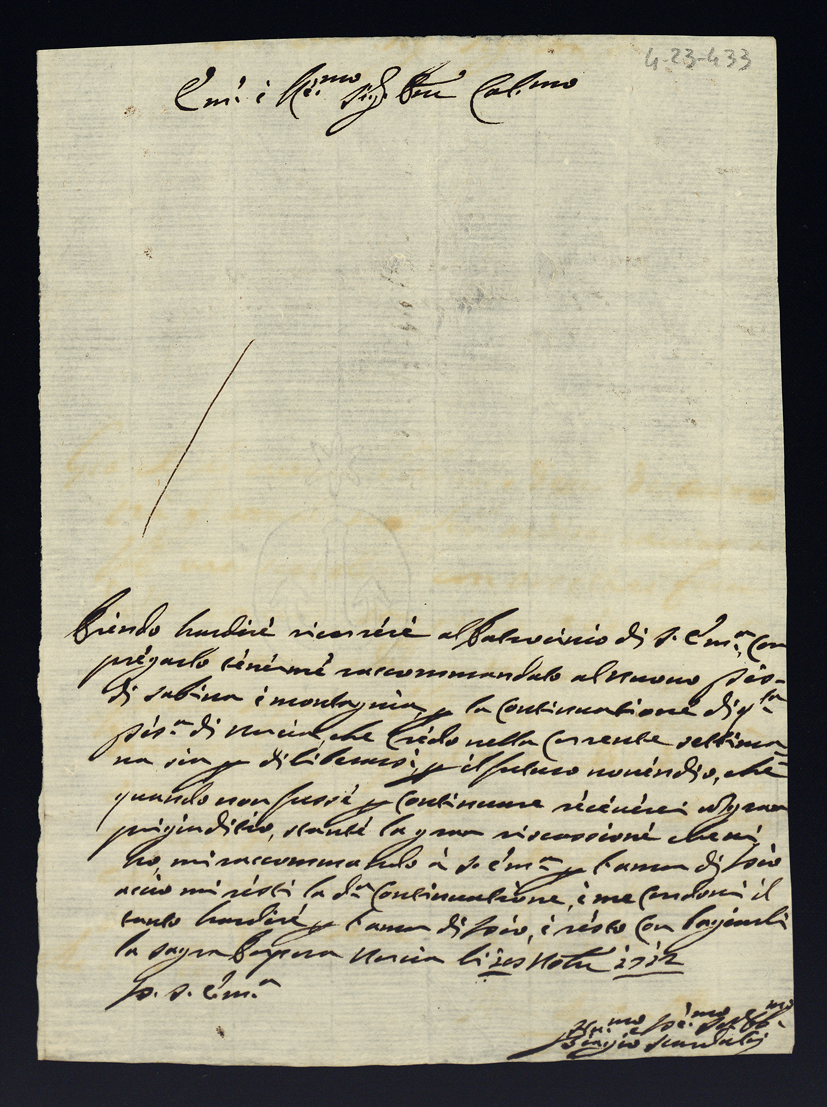 4-23-433
Em. è Re.mo Sig. Pne Col.mo
Prendo hardire ricorrere al Patrocinio di S. Em.a, con
pregarlo tenerme raccommandato al nuovo
di Sabina è montagnia p la Continuatione di q.ta
di Norcia, che Credo nella Corrente settima
na sia p diliberarsi, p il futuro novendio, che
quando non fusse p Continuare receverei gran
prigiuditio, stante la gran riscossione che
ho, mi raccommando à S. Em.a p l'amor di Dio
acciò mi resti la d.a Continuatione, è me Condoni il
tanto hardire p l'amor di Dio, è resto Con bagiarli
la Sagra Porpora Norcia li
D. S. Em.a
Hu.mo
Biagio